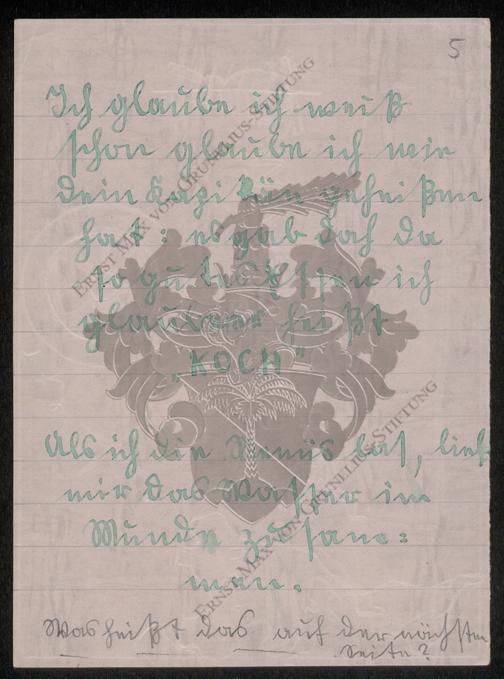 5
Ich glaube ich weiß
schon glaube ich wie
dein Kapitän geheißen
hat: es gab doch da
so gutes Essen ich
glaube er heißt
„KOCH"
Als ich die Menüs las, lief
mir das Wasser im
Munde zusam=
men.
Was heißt das auf der nächsten
Seite?
ERNST MAX VON GRUNELIUS-STIFTUNG
ERNST MAX VON GRUNELIUS-STIFTUNG